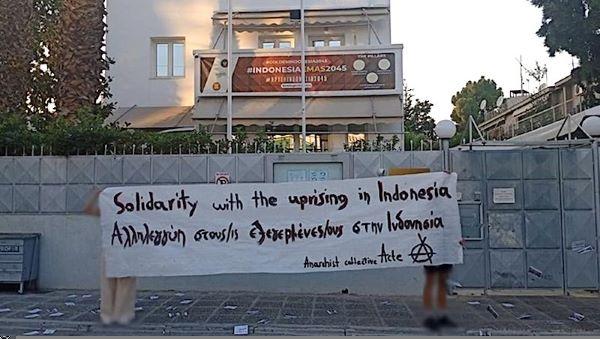 #GOLDENINDONESIA2045
#INDONESIAEMAS2045
Solidarity with the uprising in Indonesia
Αλληλεγγύη στους/ις εξεγερμένες/ους στην Ινδονησία
Anarchist collective Acte